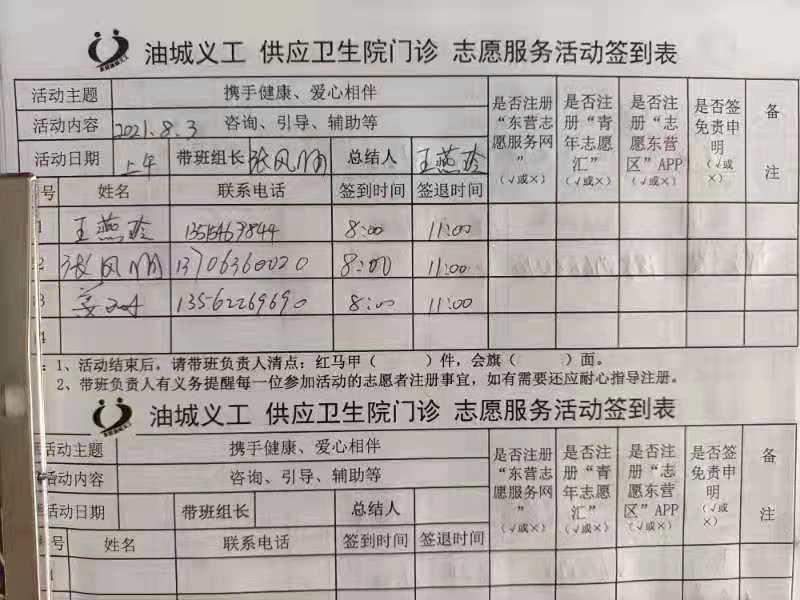 油城义工 供应卫生院门诊 志愿服务活动签到表
活动主题 携手健康、爱心相伴 是否注册“东营志愿服务网”(√或×) 是否注册“青年志愿汇”(√或×) 是否注册“志愿东营区”APP(√或×) 是否签免责申明(√或×) 备注
活动内容 2021.8.3 咨询、引导、辅助等
活动日期 上午 带班组长 张风 总结人 王燕玲
号 姓名 联系电话 签到时间 签退时间
1 王燕玲 8:00 11:00
2 张风 13706360020 8:00 11:00
3 姜 13562269690 8:00 11:00
4
：1、活动结束后，请带班负责人清点：红马甲（ ）件，会旗（ ）面。
2、带班负责人有义务提醒每一位参加活动的志愿者注册事宜，如有需要还应耐心指导注册。
油城义工 供应卫生院门诊 志愿服务活动签到表
活动主题 携手健康、爱心相伴 是否注册“东营志愿服务网”(√或×) 是否注册“青年志愿汇”(√或×) 是否注册“志愿东营区”APP(√或×) 是否签免责申明(√或×) 备注
活动内容 咨询、引导、辅助等
活动日期 带班组长 总结人
号 姓名 联系电话 签到时间 签退时间
1